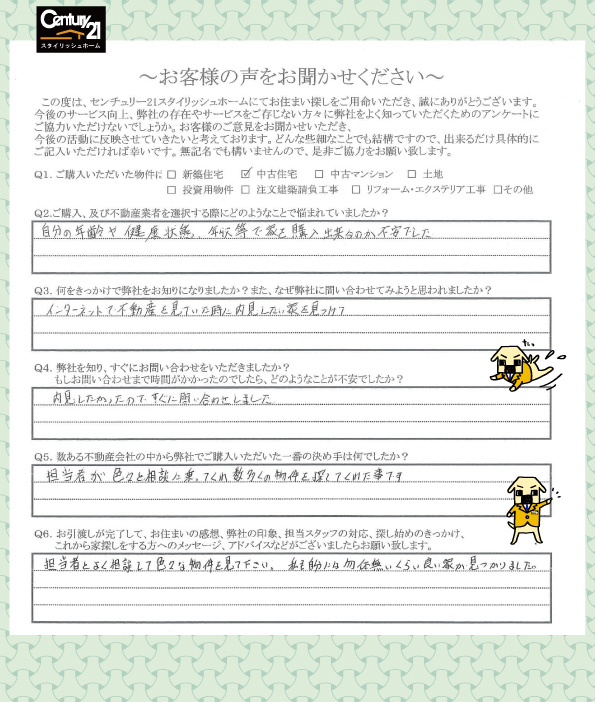 Century 21
スタイリッシュホーム
～お客様の声をお聞かせください～
この度は、センチュリー21スタイリッシュホームにてお住まい探しをご用命いただき、誠にありがとうございます。
今後のサービス向上、弊社の存在やサービスをご存じない方々に弊社をよく知っていただくためのアンケートに
ご協力いただけないでしょうか。お客様のご意見をお聞かせいただき、
今後の活動に反映させていきたいと考えております。どんな些細なことでも結構ですので、出来るだけ具体的に
ご記入いただければ幸いです。無記名でも構いませんので、是非ご協力をお願い致します。
Q1. ご購入いただいた物件は □ 新築住宅 ☑ 中古住宅 □ 中古マンション □ 土地
□ 投資用物件 □ 注文建築請負工事 □ リフォーム・エクステリア工事 □その他
Q2.ご購入、及び不動産業者を選択する際にどのようなことで悩まれていましたか?
自分の年齢や健康状態、年収等で家を購入出来るのか不安でした
Q3. 何をきっかけで弊社をお知りになりましたか?また、なぜ弊社に問い合わせてみようと思われましたか?
インターネットで不動産を見ていた時に内見したい家を見つけて
Q4. 弊社を知り、すぐにお問い合わせをいただきましたか?
もしお問い合わせまで時間がかかったのでしたら、どのようなことが不安でしたか?
内見したかったのですぐに問い合わせしました
Q5. 数ある不動産会社の中から弊社でご購入いただいた一番の決め手は何でしたか?
担当者が色々と相談に乗ってくれ数多くの物件を探してくれた事です
Q6. お引渡しが完了して、お住まいの感想、弊社の印象、担当スタッフの対応、探し始めのきっかけ、
これから家探しをする方へのメッセージ、アドバイスなどがございましたらお願い致します。
担当者とよく相談して色々な物件を見て下さい。私的には勿体無いくらい良い家が見つかりました。